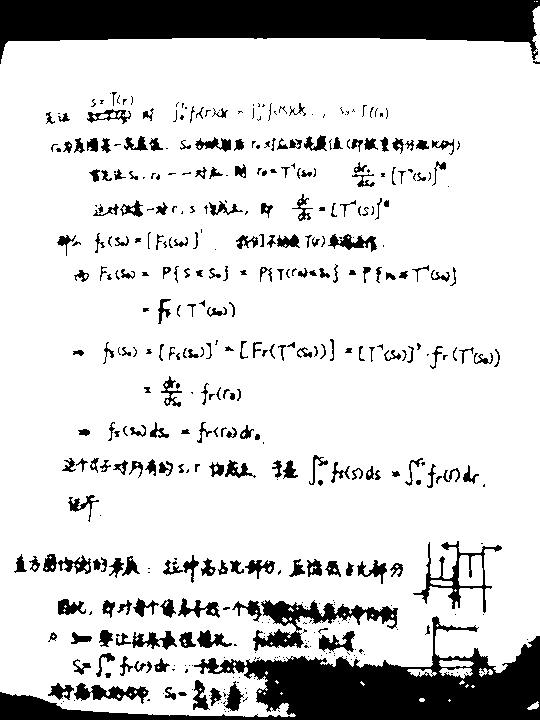 先证 s=T(r) 时 ∫₀^{r₀} fr(r)dr = ∫₀^{s₀} fs(s)ds., s₀=T(r₀)
r₀为原图某一亮度值, s₀为映射后 r₀对应的亮度值(即被重新分配比例)
首先证 s₀, r₀ 一一对应, 则 r₀=T⁻¹(s₀) dr₀/ds₀ = [T⁻¹(s₀)]'
这对任意一对 r, s 均成立, 即 dr/ds = [T⁻¹(s)]'
那么 fs(s₀) = [Fs(s₀)]'. 我们不妨设 T(r) 单调递增.
而 Fs(s₀) = P{s<s₀} = P{T(r)<s₀} = P{r<T⁻¹(s₀)}
= Fr(T⁻¹(s₀))
⇒ fs(s₀) = [Fs(s₀)]' = [Fr(T⁻¹(s₀))] = [T⁻¹(s₀)]'·fr(T⁻¹(s₀))
= dr₀/ds₀ · fr(r₀)
⇒ fs(s₀)ds₀ = fr(r₀)dr₀.
这个式子对所有的 s, r 均成立. 于是 ∫₀^{s₀} fs(s)ds = ∫₀^{r₀} fr(r)dr.
证毕.
直方图均衡的本质: 拉伸高占比部分, 压缩低占比部分
因此, 即对每个像素寻找一个
要让结果
S₀=∫₀^{r₀} fr(r)dr.,
对于离散的 S₀=